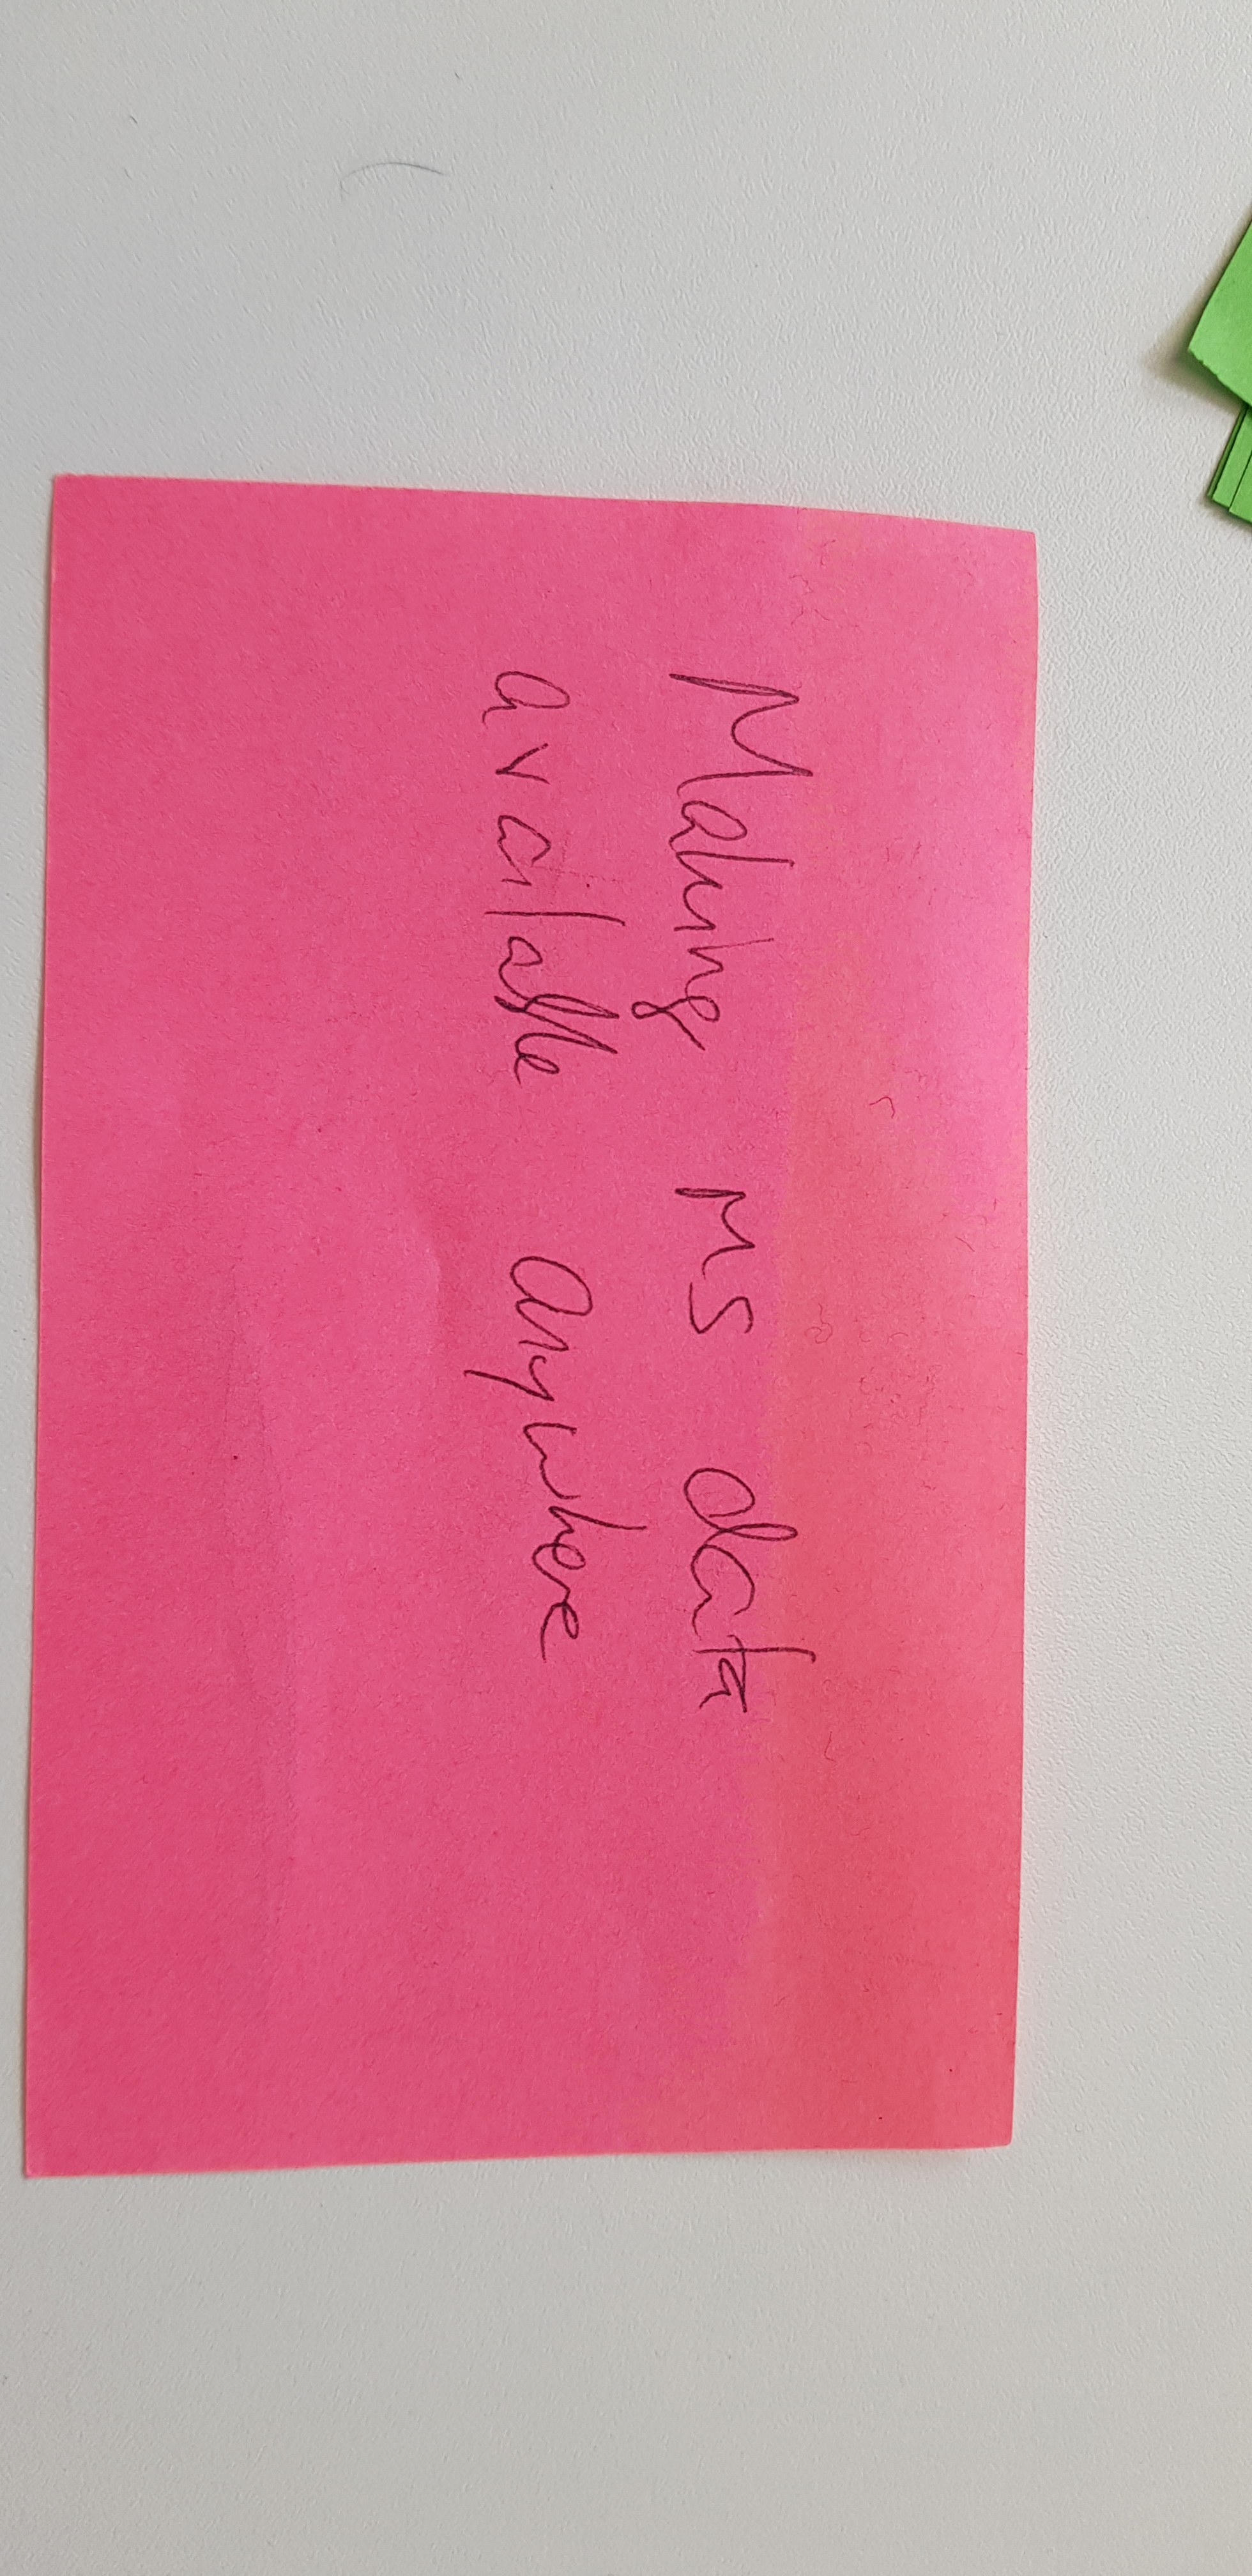 Making MS data
available anywhere